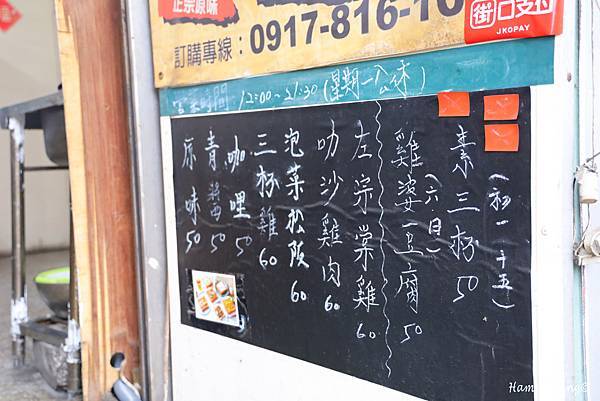 正宗原味
訂購專線：0917-816-16
街口支付
JKOPAY
營業時間 12:00~21:30 (星期一公休)
素三杯 50
(初一、十五)
雞婆豆腐 50
(六日)
左宗棠雞 60
叻沙雞肉 60
泡菜松阪 60
三杯雞 60
咖哩 50
青醬 50
原味 50